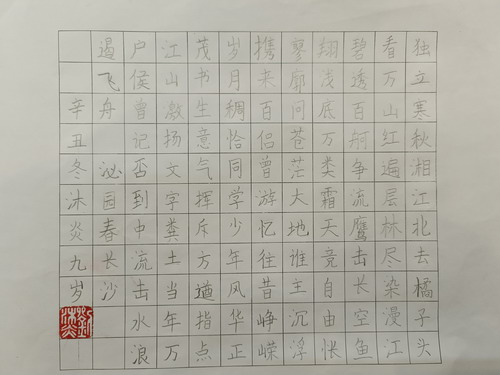 独立寒秋湘江北去橘子头
看万山红遍层林尽染漫江
碧透百舸争流鹰击长空鱼
翔浅底万类霜天竞自由怅
寥廓问苍茫大地谁主沉浮
携来百侣曾游忆往昔峥嵘
岁月稠恰同学少年风华正
茂书生意气挥斥方遒指点
江山激扬文字粪土当年万
户侯曾记否到中流击水浪
遏飞舟 泌园春长沙
辛丑冬沐炎九岁